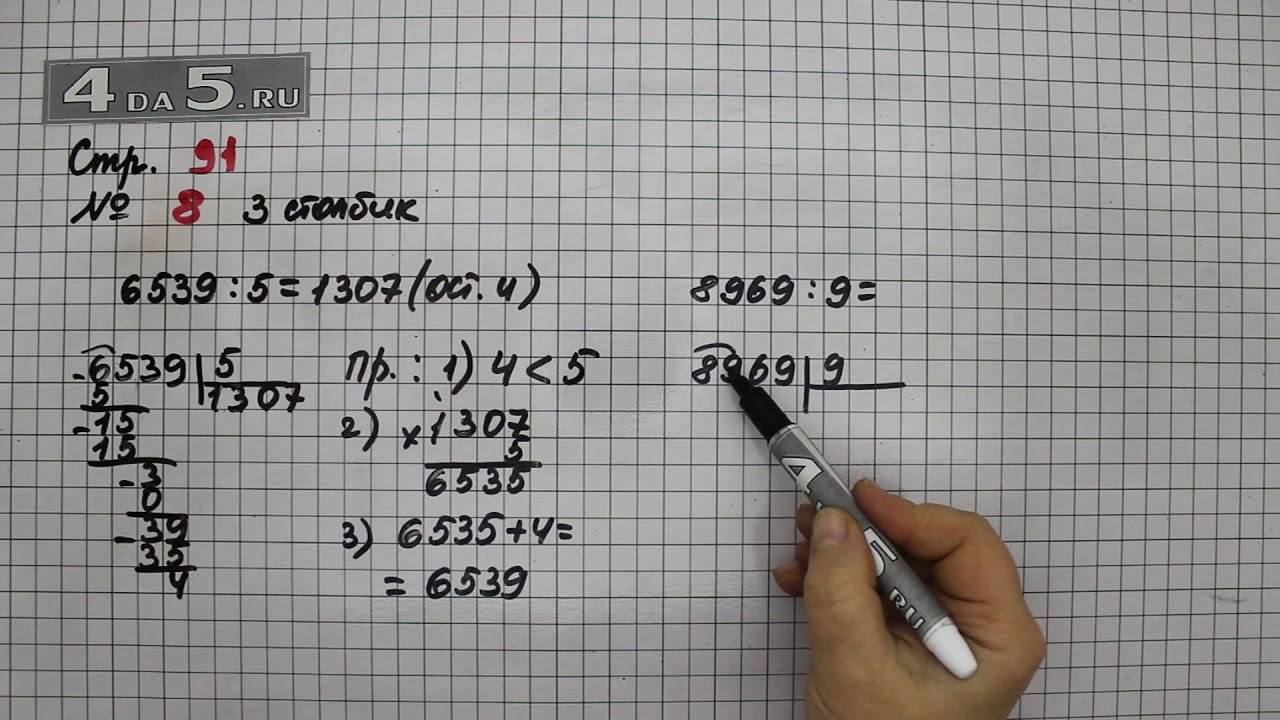 4 DA 5.RU
Стр. 91
№ 8 3 столбик
6539 : 5 = 1307 (ост. 4)
6539 | 5
1307
- 5
- 15
15
- 3
0
- 39
35
4
пр.: 1) 4 < 5
2) × 1307
5
6535
3) 6535 + 4 =
= 6539
8969 : 9 =
8969 | 9
4 5 RU